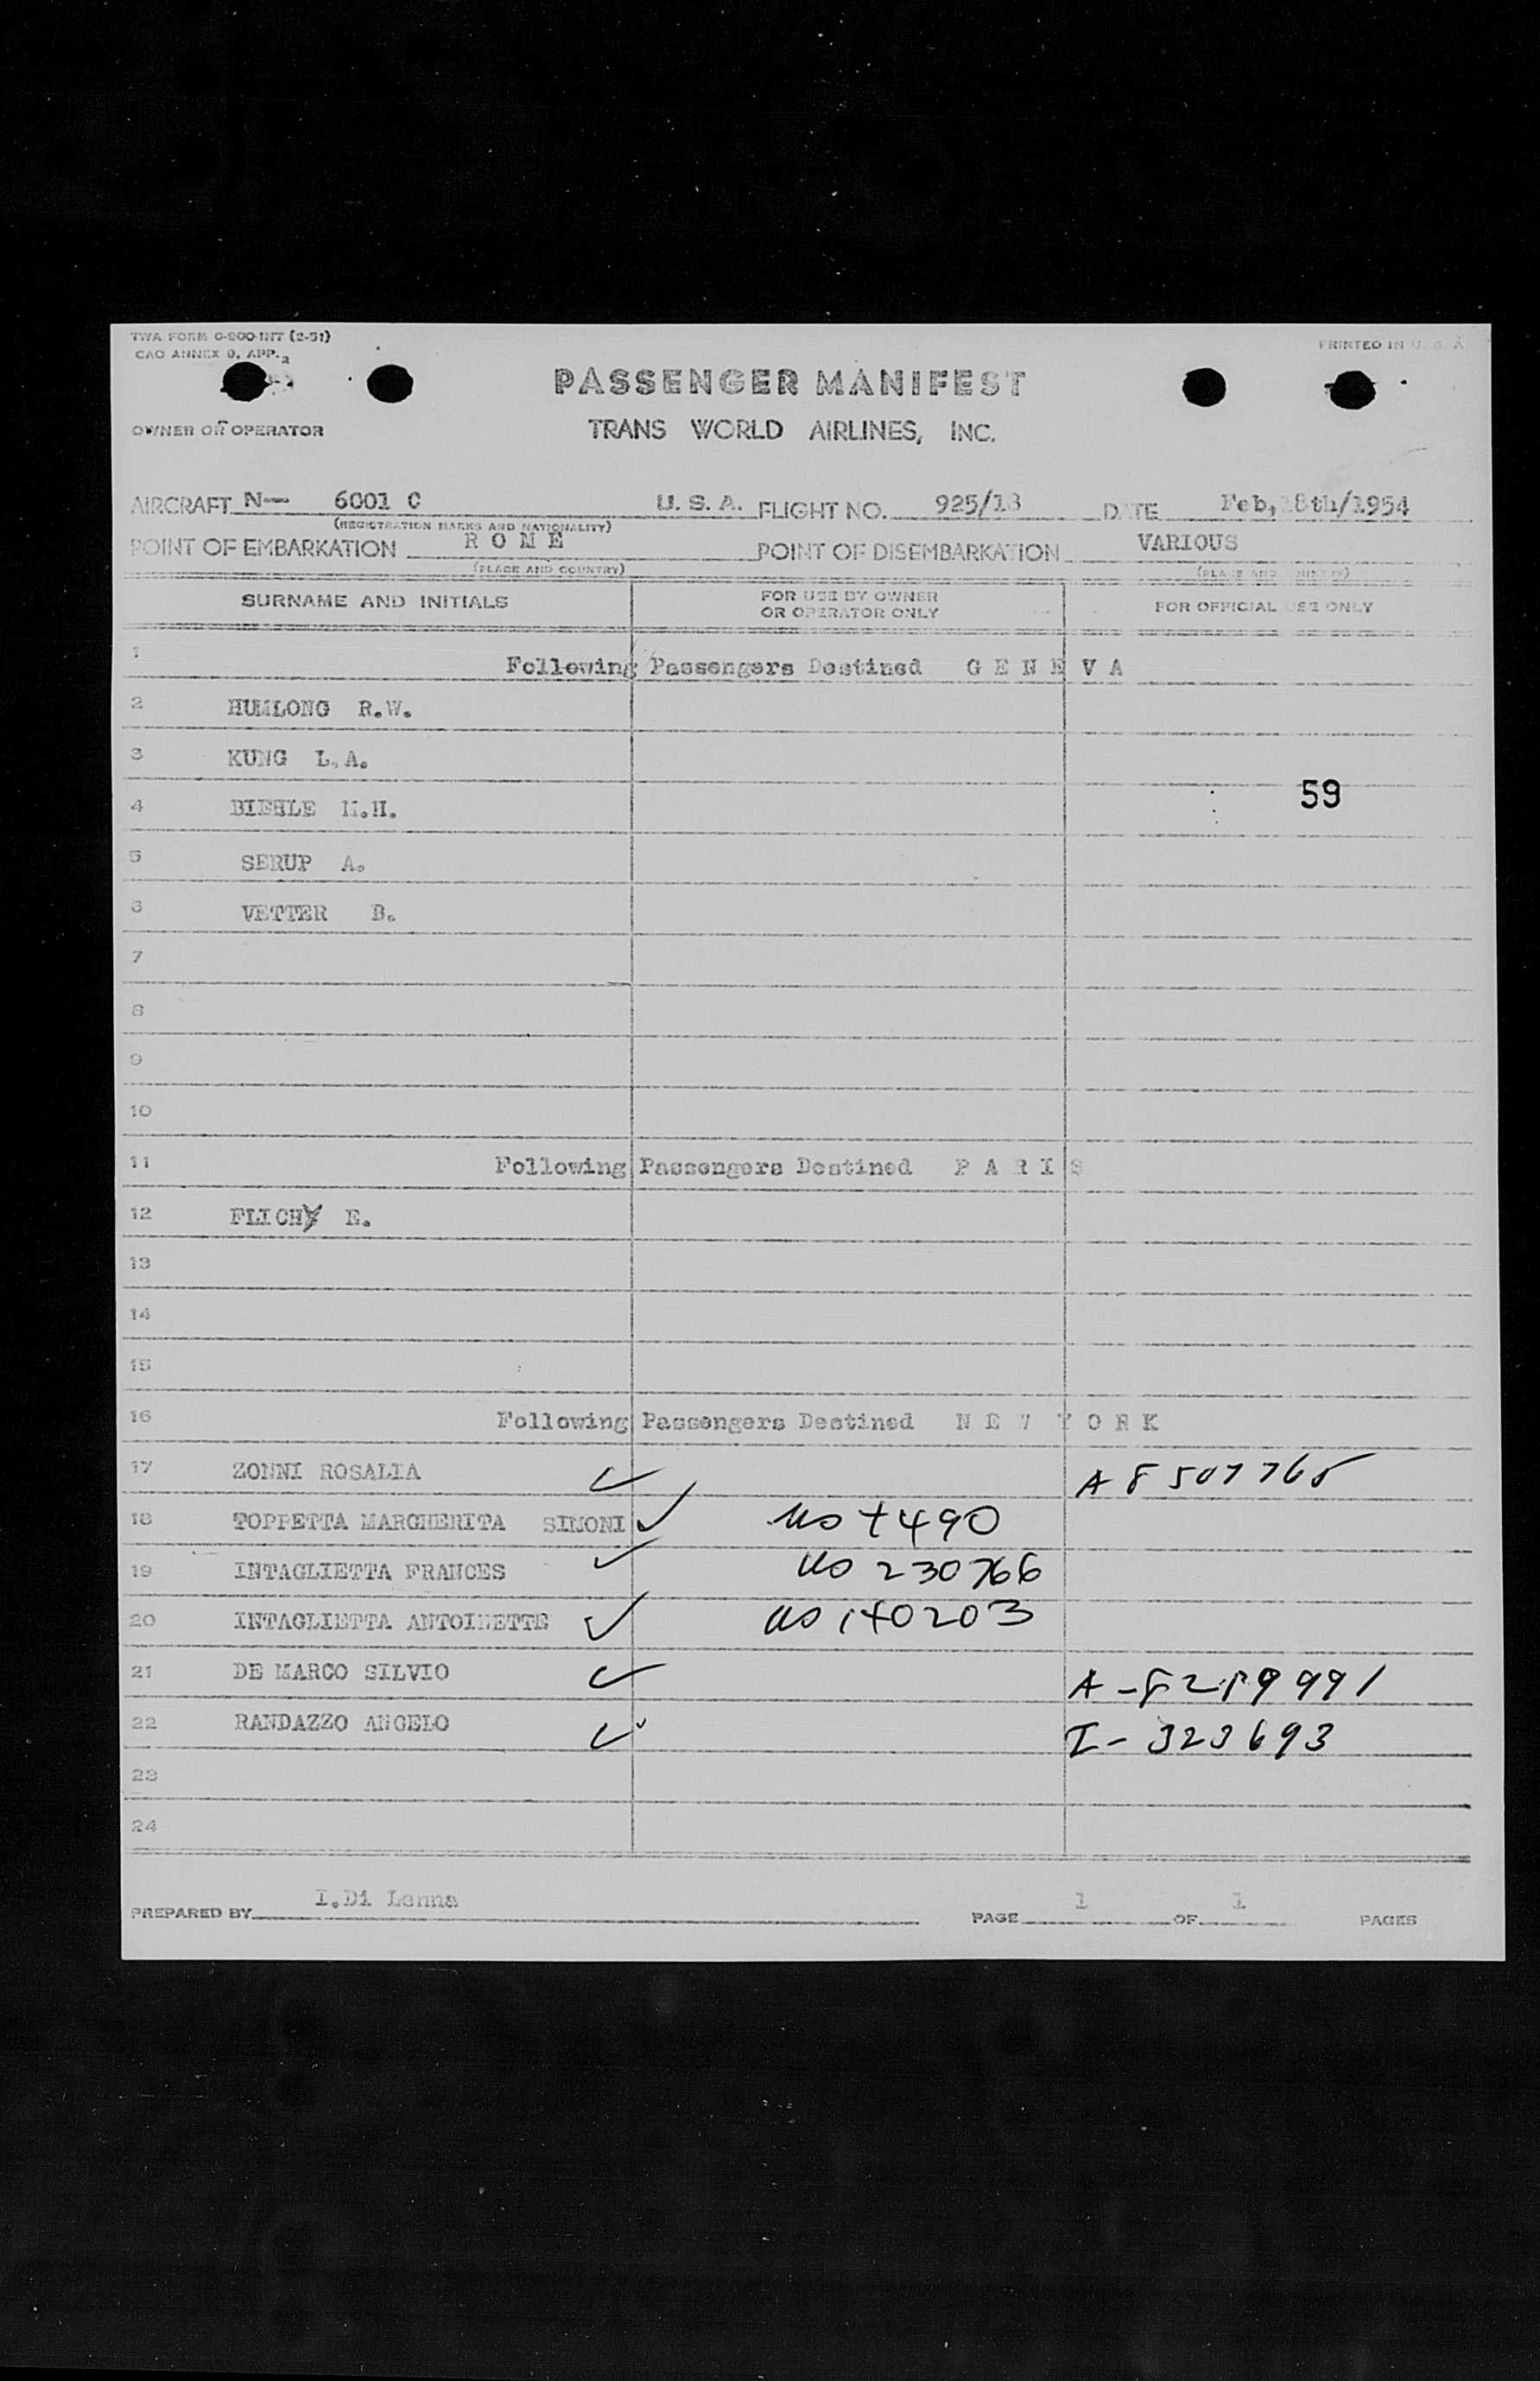 TWA FORM 0-200-INT (2-51)
CAO ANNEX 9, APP. 2
PRINTED IN U. S. A.
PASSENGER MANIFEST
OWNER OR OPERATOR
TRANS WORLD AIRLINES, INC.
AIRCRAFT N— 6001 C U. S. A. FLIGHT NO. 925/18 DATE Feb, 18th/1954
(REGISTRATION MARKS AND NATIONALITY)
POINT OF EMBARKATION R O M E POINT OF DISEMBARKATION VARIOUS
(PLACE AND COUNTRY) (PLACE AND COUNTRY)
SURNAME AND INITIALS FOR USE BY OWNER OR OPERATOR ONLY FOR OFFICIAL USE ONLY
1 Following Passengers Destined G E N E V A
2 HUMLONG R.W.
3 KUNG L.A.
59
4 BIEHLE M.H.
5 SERUP A.
6 VETTER B.
7
8
9
10
11 Following Passengers Destined P A R I S
12 FLICHY E.
13
14
15
16 Following Passengers Destined N E W Y O R K
17 ZONNI ROSALIA ✓ A 8 507 765
18 TOPPETTA MARGHERITA SIMONI ✓ US + 490
19 INTAGLIETTA FRANCES ✓ US 230766
20 INTAGLIETTA ANTOINETTE ✓ US 140203
21 DE MARCO SILVIO ✓ A-8219991
22 RANDAZZO ANGELO ✓ I-323693
23
24
PREPARED BY I.Di Lenna PAGE 1 OF 1 PAGES